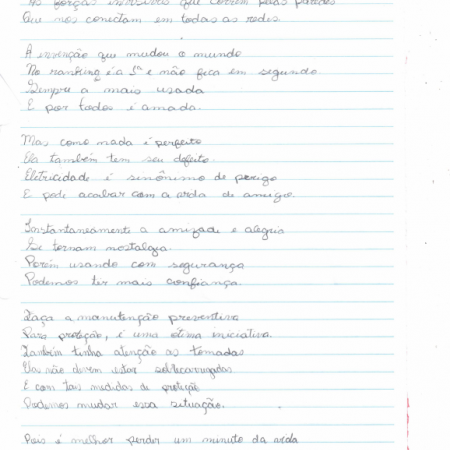 Nas forças invisíveis que correm pelas paredes
Que nos conectam em todas as redes.
A invenção que mudou o mundo
No ranking é a 1ª e não fica em segundo
Sempre a mais usada
E por todos é amada.
Mas como nada é perfeito
Ela também tem seu defeito.
Eletricidade é sinônimo de perigo
E pode acabar com a vida de amigo.
Instantaneamente a amizade e alegria
Se tornam nostalgia.
Porém usando com segurança
Podemos ter mais confiança.
Faça a manutenção preventiva
Para proteção, é uma ótima iniciativa.
Também tenha atenção as tomadas
Elas não devem estar sobrecarregadas
E com tais medidas de proteção
Podemos mudar essa situação.
Pois é melhor perder um minuto da vida